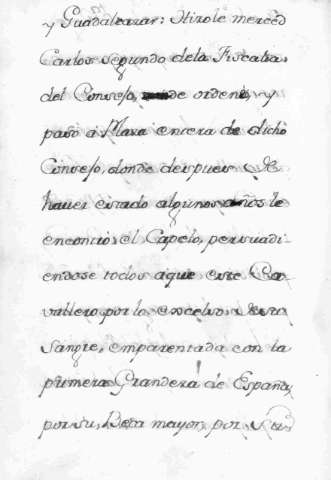 y Guadalcazar: Hizole merced
Carlos segundo dela Fiscalia
del Consejo, de ordens, y
paso á Plaza entera de dicho
Consejo, donde despues de
haver estado algunos años le
encontró, el Capelo, persuadi-
endose todos aque este Ca-
vallero por lo excelso, de su
Sangre, emparentada con la
primera Grandeza de España,
por su, Beca mayor, por su